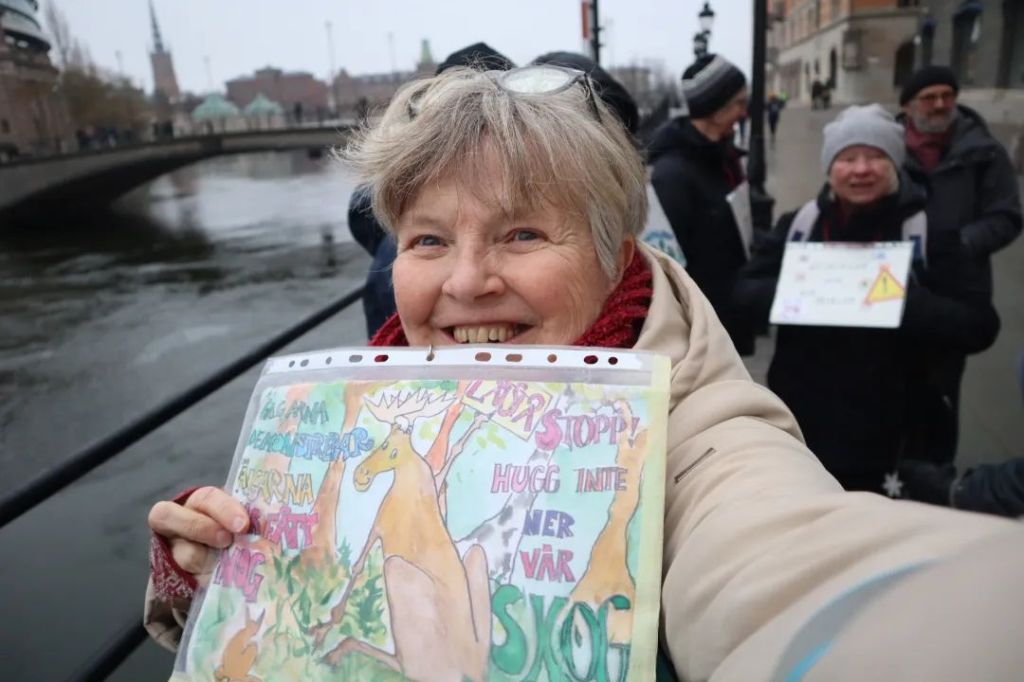 ÄLGARNA
DEMONSTRERAR
ÄLGARNA
HAR FÅTT
NOG
STOPP!
HUGG INTE
NER
VÅR
SKOG